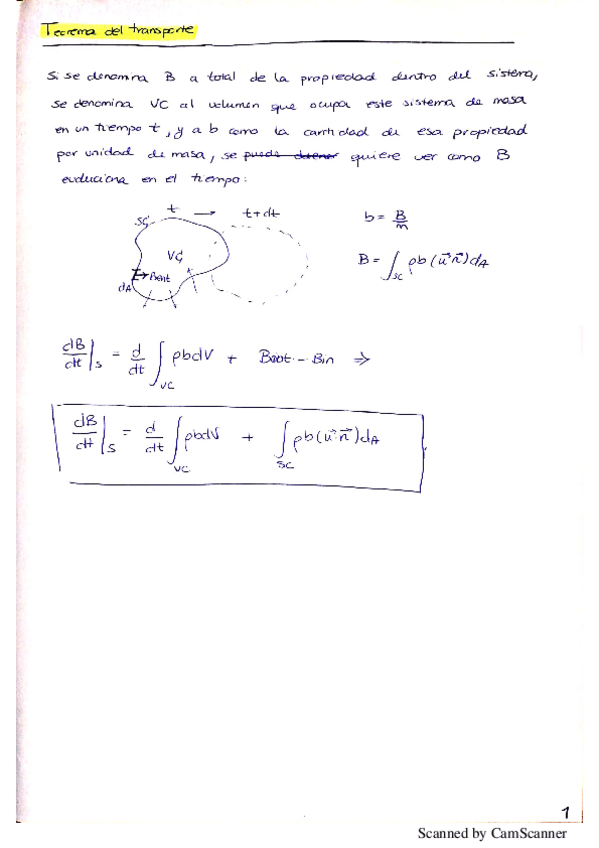 Teorema del transporte
Si se denomina B a total de la propiedad dentro del sistema,
se denomina VC al volumen que ocupa este sistema de masa
en un tiempo t, y a b como la cantidad de esa propiedad
por unidad de masa, se puede obtener quiere ver como B
evoluciona en el tiempo:
t → t+dt
SC
VC
Bout
dA
b = B/m
B = ∫SC ρb(u⃗·n⃗)dA
dB/dt|S = d/dt ∫VC ρbdV + Bout - Bin ⇒
dB/dt|S = d/dt ∫VC ρbdV + ∫SC ρb(u⃗·n⃗)dA
1
Scanned by CamScanner